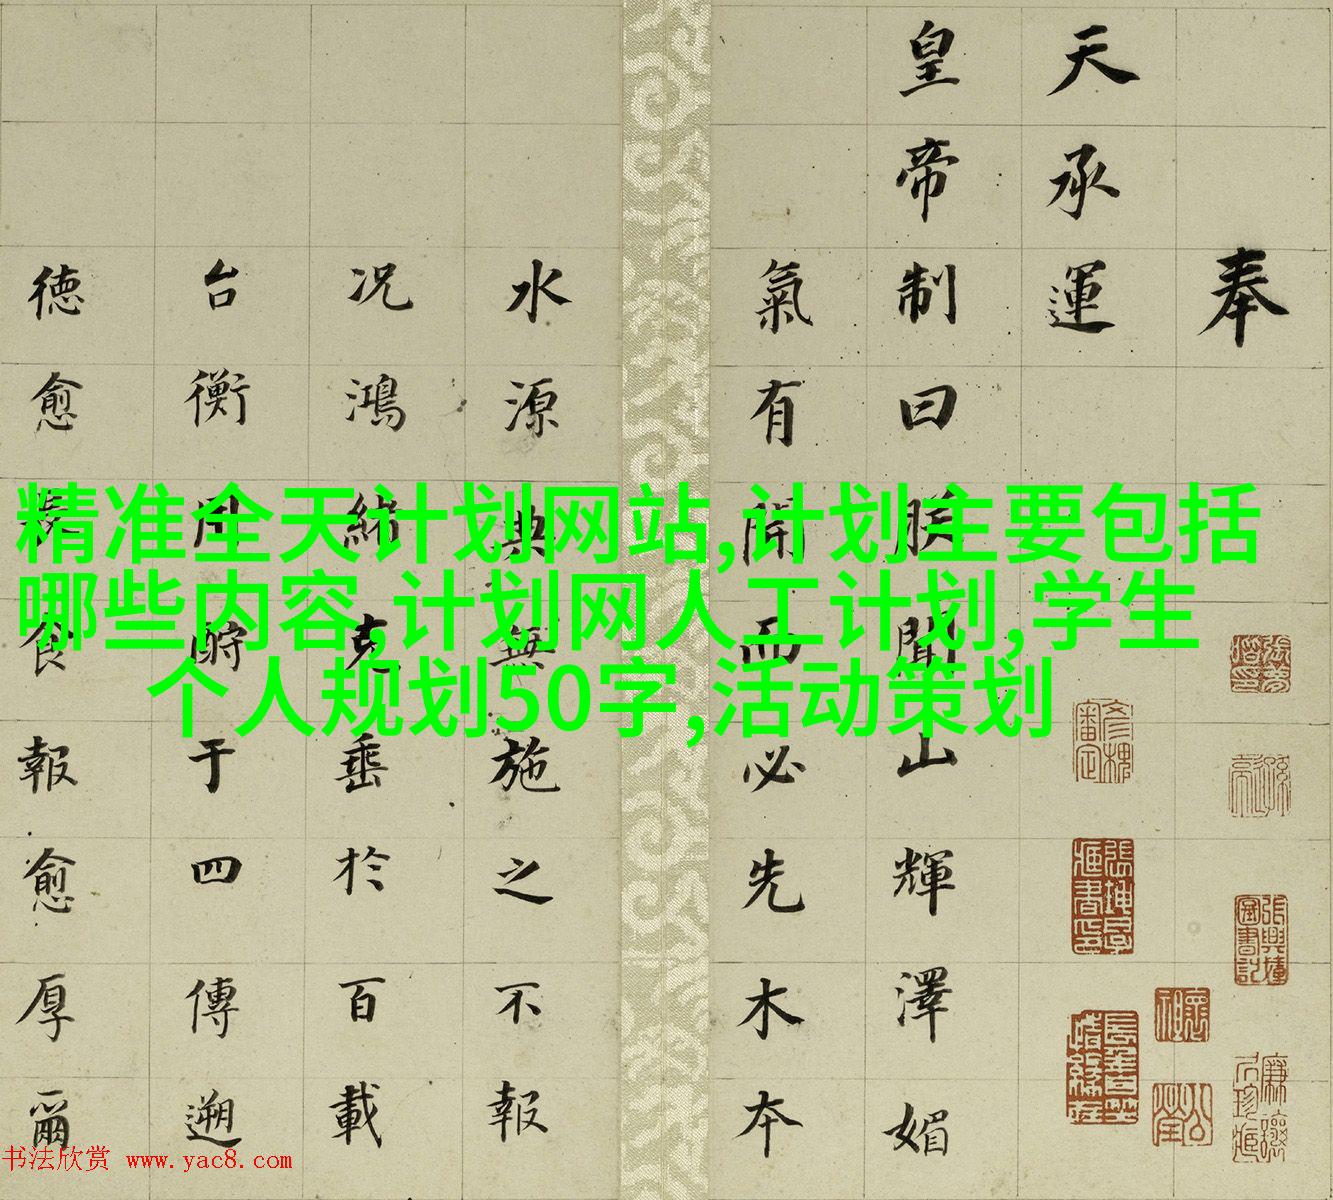 奉
天承運
皇帝制曰朕聞山輝澤媚
氣有開而必先木本
水源典無施之不報
況鴻緒克垂於百載
台衡用酬于四傳遡
德愈食報愈厚爾
精准全天计划网站,计划主要包括
哪些内容,计划网人工计划,学生
个人规划50字,活动策划
书法欣赏 www.yac8.com